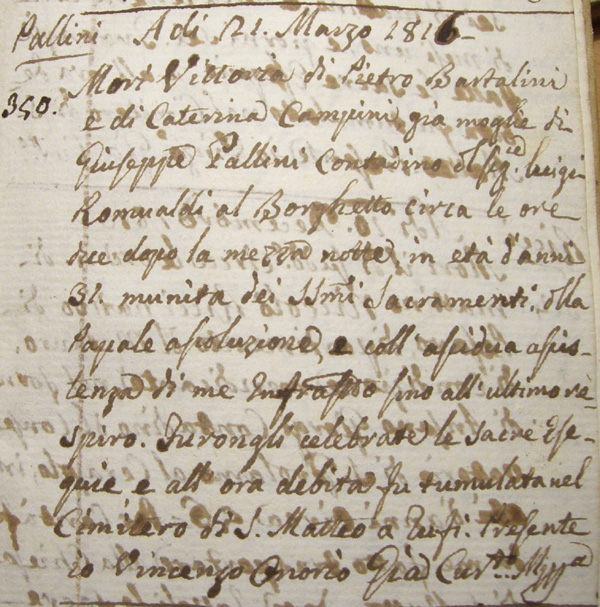 Pallini A di 21. Marzo 1816
350. Morì Vittoria di Pietro Bartalini
e di Caterina Campini già moglie di
Giuseppe Pallini Contadino del Sigre. Luigi
Romualdi al Borghetto circa le ore
due dopo la mezza notte, in età d'anni
31. munita dei SSmi Sacramenti, dlla
Papale assoluzione, e coll' assidua assis-
tenza di me Infratto sino all' ultimo re-
spiro. Furongli celebrate le sacre Ese-
quie e all' ora debita fu tumulata nel
Cimitero di S. Matteo a Tufi. Presente
io Vincenzo Onorio